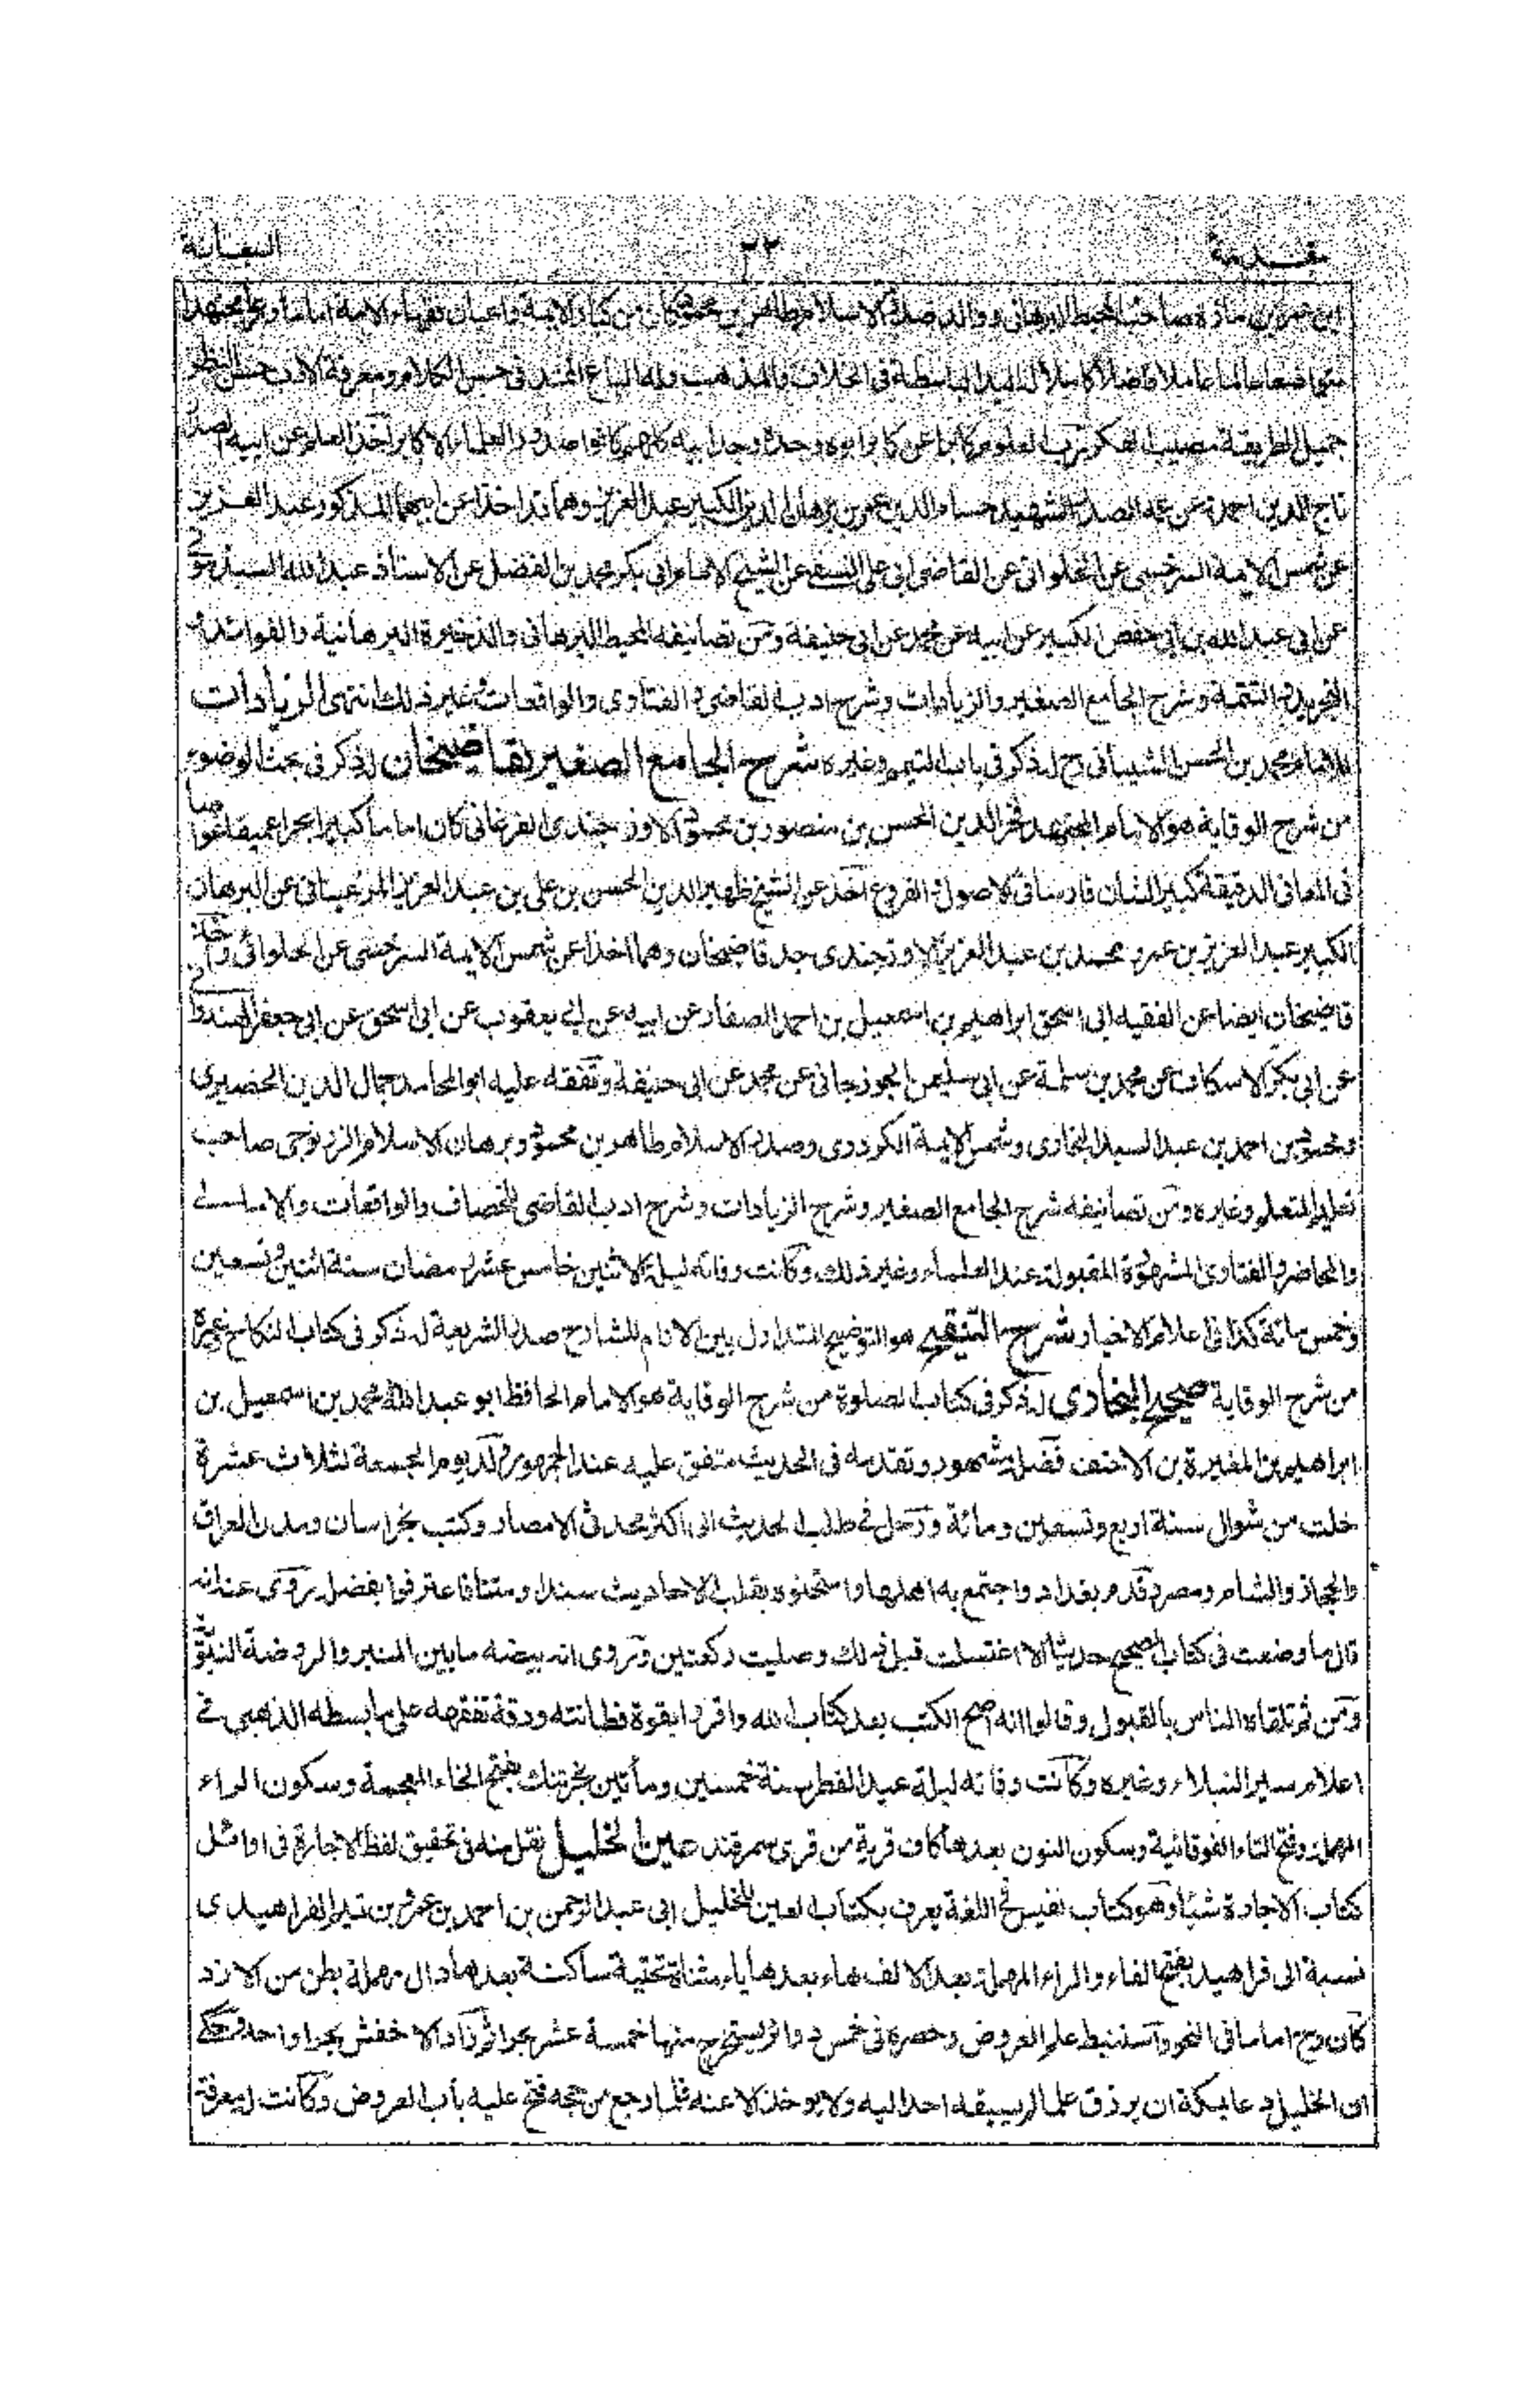 مقدمة ٢٢ السعاية
ابن عمر بن مازه صاحب المحيط البرهاني ووالد صدر الاسلام طاهر بن محمود كان من كبار الايمة واعيان فقهاء الامة اماما ورعا مجتهدا
متواضعا عالما عاملا فاضلا كاملا له اليد الباسطة في الخلاف والمذهب وله الباع الممتد في حسن الكلام ومعرفة الادب حسن النظر
جميل الطريقة مصيب الفكر رب العلوم كابرا عن كابر ابوه وجده وجد ابيه كلهم كانوا صدور العلماء الاكابر اخذ العلم عن ابيه الصدر
تاج الدين احمد وعن عمه الصدر الشهيد حسام الدين عمر بن برهان الدين الكبير عبد العزيز وهما قد اخذا عن ابيهما المذكور عبد العزيز
عن شمس الايمة السرخسي عن الحلواني عن القاضي ابي علي النسفي عن الشيخ الامام ابي بكر محمد بن الفضل عن الاستاذ عبد الله السبذموني
عن ابي عبد الله بن ابي حفص الكبير عن ابيه عن محمد عن ابي حنيفة ومن تصانيفه المحيط البرهاني والذخيرة البرهانية والفوائد و
التجريد والتتمة وشرح الجامع الصغير والزيادات وشرح ادب القاضي والفتاوى والواقعات وغير ذلك انتهى الزيادات
للامام محمد بن الحسن الشيباني رح له ذكر في باب التيمم وغيره شرح الجامع الصغير لقاضيخان له ذكر في بحث الوضوء
من شرح الوقاية هو الامام المجتهد فخر الدين الحسن بن منصور بن محمود الاوزجندى الفرغاني كان اماما كبيرا بحرا عميقا غواصا
في المعاني الدقيقة كبير الشان فارسا في الاصول والفروع اخذ عن الشيخ ظهير الدين الحسن بن علي بن عبد العزيز المرغيناني عن البرهان
الكبير عبد العزيز بن عمر و محمد بن عبد العزيز الاوزجندى جد قاضيخان وهما اخذا عن شمس الايمة السرخسي عن الحلوائي واخذ
قاضيخان ايضا عن الفقيه ابي اسحق ابراهيم بن اسمعيل بن احمد الصفار عن ابيه عن ابي يعقوب عن ابي اسحق عن ابي جعفر الهندواني
عن ابي بكر الاسكاف عن محمد بن سلمة عن ابي سليمن الجوزجاني عن محمد عن ابي حنيفة وتفقه عليه ابو المحامد جمال الدين الحصيرى
ومحمود بن احمد بن عبد السيد البخارى وشمس الايمة الكردرى وصدر الاسلام طاهر بن محمود وبرهان الاسلام الزرنوجى صاحب
تعليم المتعلم وغيره ومن تصانيفه شرح الجامع الصغير وشرح الزيادات وشرح ادب القاضي للخصاف والواقعات والامالي
والمحاضر والفتاوى المشهورة المقبولة عند العلماء وغير ذلك وكانت وفاته ليلة الاثنين خامس عشر رمضان سنة اثنين وتسعين
وخمس مائة كذا في اعلام الاخيار شرح التنقيح هو التوضيح المتداول بين الانام للشارح صدر الشريعة له ذكر في كتاب النكاح وغيره
من شرح الوقاية صحيح البخارى له ذكر في كتاب الصلوة من شرح الوقاية هو الامام الحافظ ابو عبد الله محمد بن اسمعيل بن
ابراهيم بن المغيرة بن الاحنف فضله مشهور وتقدمه في الحديث متفق عليه عند الجمهور ولد يوم الجمعة لثلاث عشرة
خلت من شوال سنة اربع وتسعين ومائة ورحل في طلب الحديث الى اكثر محدثي الامصار وكتب بخراسان ومدن العراق
والحجاز والشام ومصر وقدم بغداد واجتمع به اهلها وامتحنوه بقلب الاحاديث سندا ومتنا فاعترفوا بفضله روى عنه انه
قال ما وضعت في كتاب الصحيح حديثا الا اغتسلت قبل ذلك وصليت ركعتين وروى انه بيضه ما بين المنبر والروضة النبوية
ومن ثم تلقاه الناس بالقبول وقالوا انه اصح الكتب بعد كتاب الله واقروا بقوة فطانته ودقة تفقهه على ما بسطه الذهبي في
اعلام سير النبلاء وغيره وكانت وفاته ليلة عيد الفطر سنة خمسين ومأتين بخرتنك بفتح الخاء المعجمة وسكون الراء
المهملة وفتح التاء الفوقانية وسكون النون بعدها كاف قرية من قرى سمرقند عين الخليل نقل منه في تحقيق لفظ الاجارة في اوائل
كتاب الاجارة شيئا وهو كتاب نفيس في اللغة يعرف بكتاب العين للخليل ابي عبد الرحمن بن احمد بن عمرو بن تميم الفراهيدى
نسبة الى فراهيد بفتح الفاء والراء المهملة بعد الالف هاء بعدها ياء مثناة تحتية ساكنة بعدها دال مهملة بطن من الازد
كان رح اماما في النحو واستنبط علم العروض وحصره في خمس دوائر يستخرج منها خمسة عشر بحرا ثم زاد الاخفش بحرا واحدا وحكى
ان الخليل دعا بمكة ان يرزق علما لم يسبقه احد اليه ولا يوخذ الا عنه فلما رجع من حجه فتح عليه باب العروض وكانت له معرفة